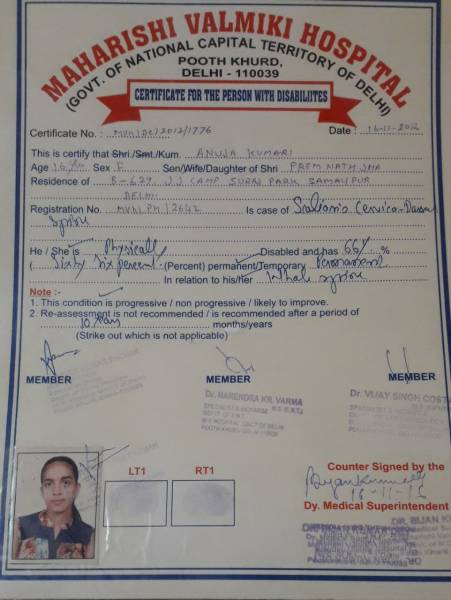 MAHARISHI VALMIKI HOSPITAL
(GOVT. OF NATIONAL CAPITAL TERRITORY OF DELHI)
POOTH KHURD,
DELHI - 110039
CERTIFICATE FOR THE PERSON WITH DISABILIITES
Certificate No. : MVH/DC/2012/1776 Date : 16-11-2012
This is certify that Shri./Smt./Kum. ANUJA KUMARI
Age 16 Sex F Son/Wife/Daughter of Shri PREM NATH JHA
Residence of B-629, JJ CAMP SURAJ PARK, SAMAYPUR
DELHI
Registration No. MVH/PH/2642 Is case of Scoliosis Cervico-Dorsal
Spine
He / She is Physically Disabled and has 66% %
(Sixty Six percent (Percent) permanent/Temporary Permanent
In relation to his/her Whole spine
Note :-
1. This condition is progressive / non progressive / likely to improve.
2. Re-assessment is not recommended / is recommended after a period of
10 years months/years
(Strike out which is not applicable)
MEMBER MEMBER MEMBER
Dr. NARENDRA KR. VARMA Dr. VIJAY SINGH
LT1 RT1
Counter Signed by the
16-11-12
Dy. Medical Superintendent
DR. BIJAN